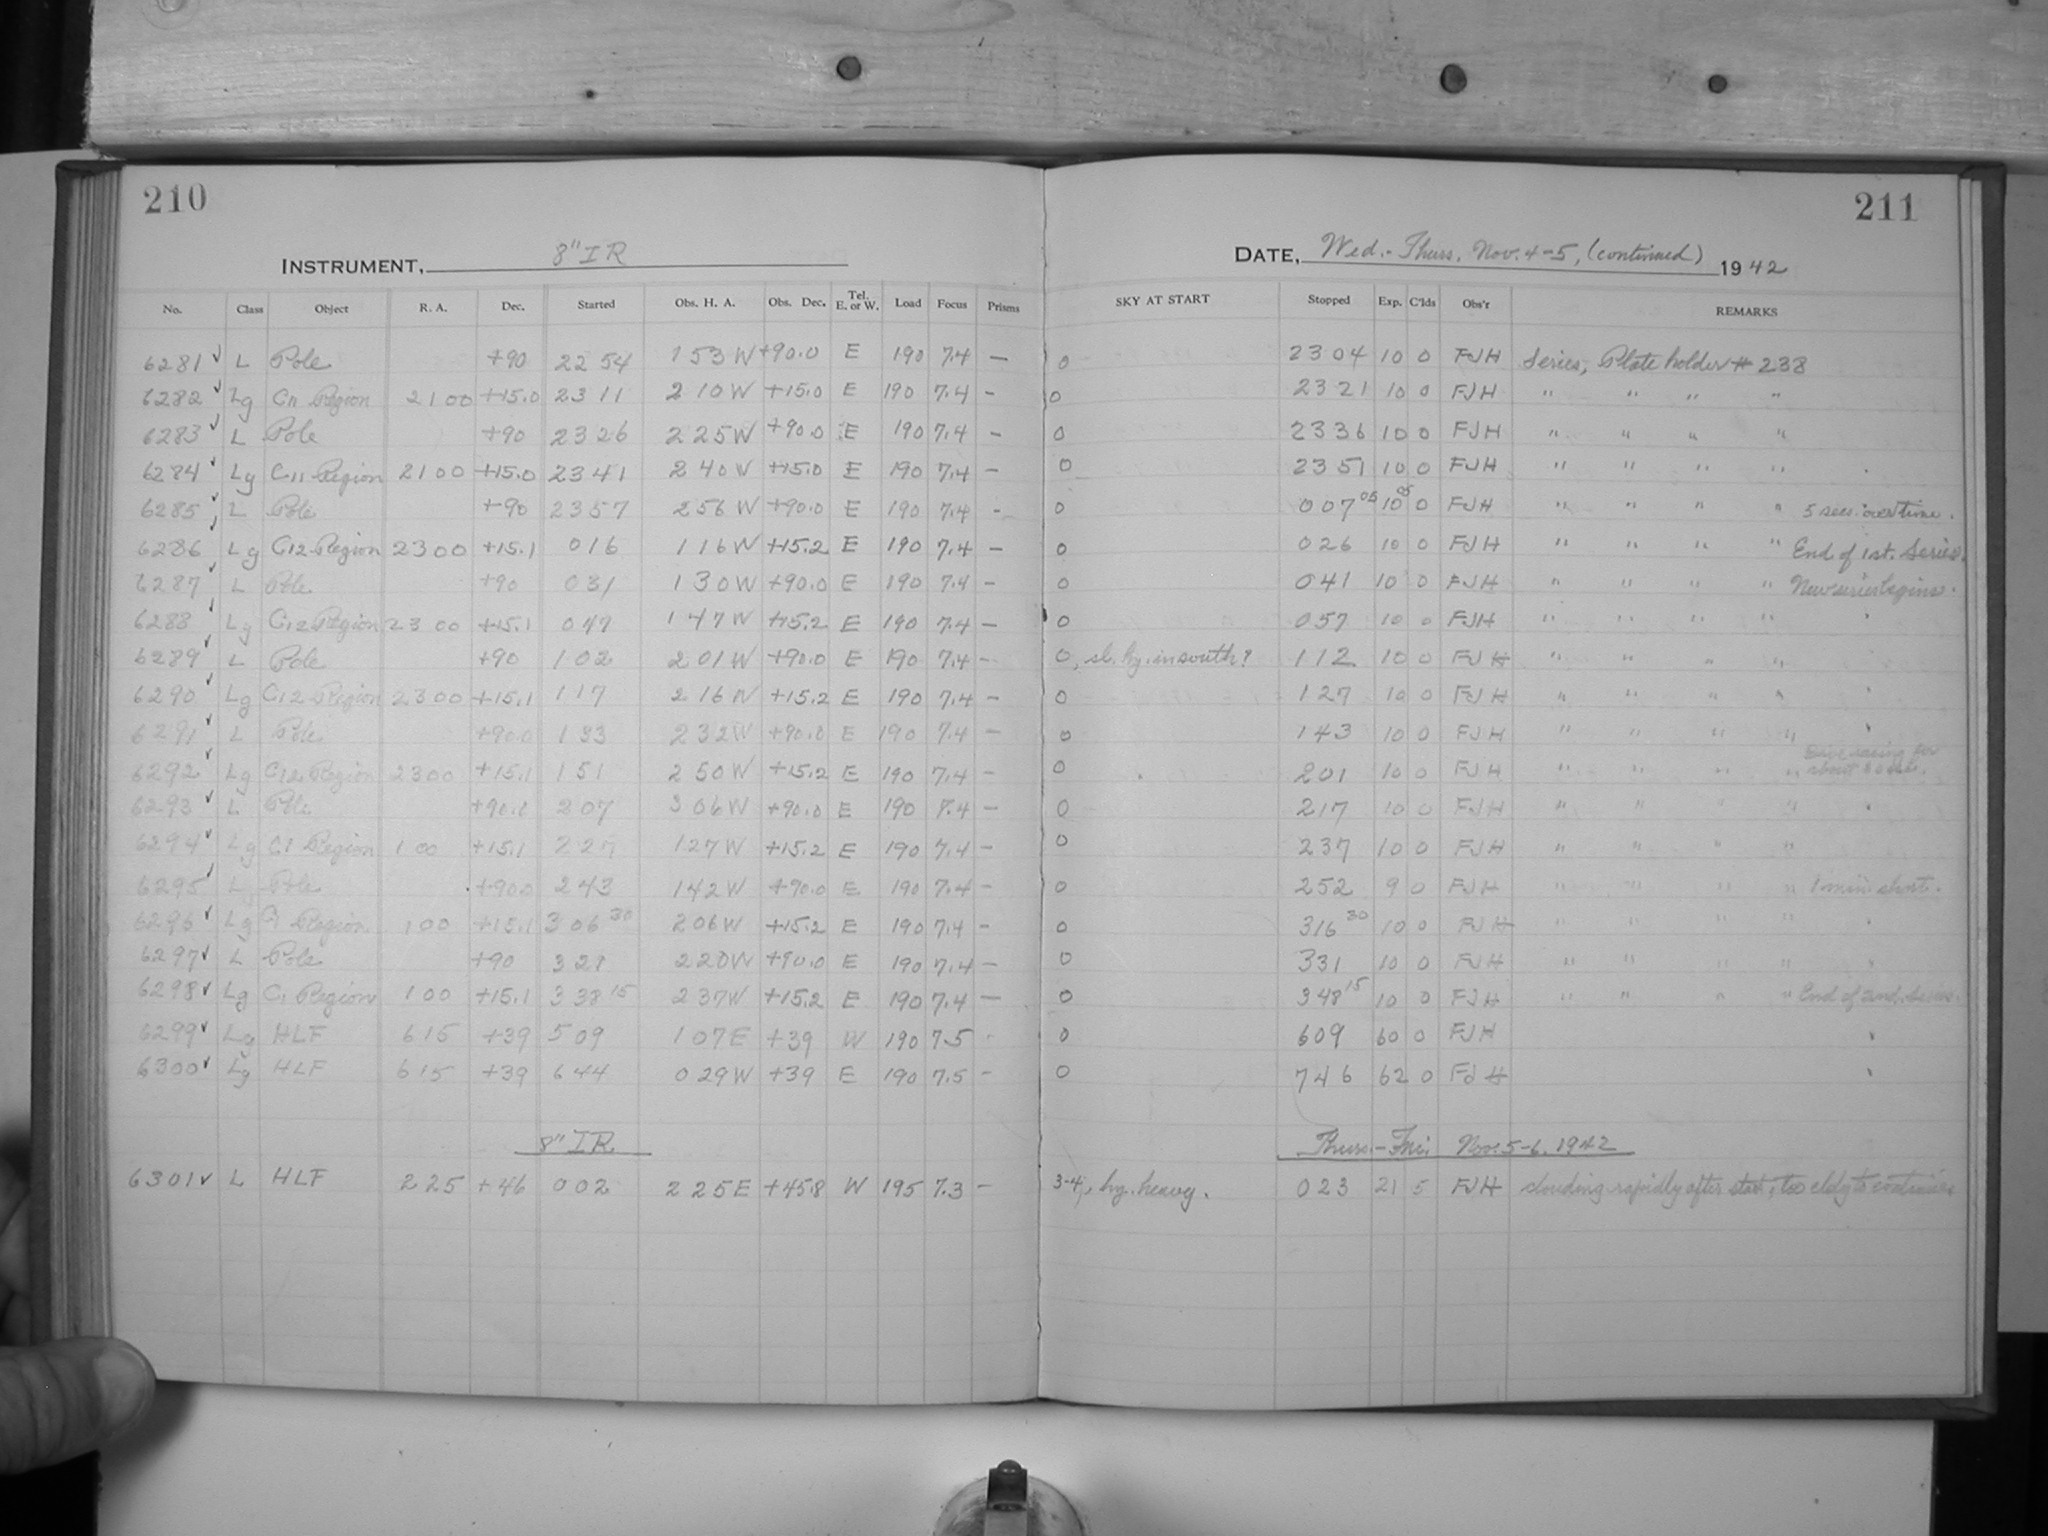 210
211
INSTRUMENT, 8" IR
DATE, Wed.-Thurs, Nov. 4-5, (continued) 1942
No. Class Object R. A. Dec. Started Obs. H. A. Obs. Dec. Tel. E. or W. Load Focus Prisms SKY AT START Stopped Exp. C'lds Obs'r REMARKS
6281 ✓ L Pole +90 22 54 1 53 W +90.0 E 190 7.4 — 0 23 04 10 0 FJH Series, Plate holder # 238
6282 ✓ Lg C11 Region 21 00 +15.0 23 11 2 10 W +15.0 E 190 7.4 - 0 23 21 10 0 FJH " " " "
6283 ✓ L Pole +90 23 26 2 25 W +90.0 E 190 7.4 - 0 23 36 10 0 FJH " " " "
6284 ✓ Lg C11 Region 21 00 +15.0 23 41 2 40 W +15.0 E 190 7.4 - 0 23 51 10 0 FJH " " " "
6285 ✓ L Pole +90 23 57 2 56 W +90.0 E 190 7.4 - 0 0 07 05 10 05 0 FJH " " " " 5 secs. overtime.
6286 ✓ Lg C12 Region 23 00 +15.1 0 16 1 16 W +15.2 E 190 7.4 - 0 0 26 10 0 FJH " " " " End of 1st. Series.
6287 ✓ L Pole +90 0 31 1 30 W +90.0 E 190 7.4 - 0 0 41 10 0 FJH " " " " New series begins.
6288 ✓ Lg C12 Region 23 00 +15.1 0 47 1 47 W +15.2 E 190 7.4 - 0 0 57 10 0 FJH " " " "
6289 ✓ L Pole +90 1 02 2 01 W +90.0 E 190 7.4 - 0, sl. hy. in south? 1 12 10 0 FJH " " " "
6290 ✓ Lg C12 Region 23 00 +15.1 1 17 2 16 W +15.2 E 190 7.4 - 0 1 27 10 0 FJH " " " "
6291 ✓ L Pole +90.0 1 33 2 32 W +90.0 E 190 7.4 - 0 1 43 10 0 FJH " " " "
6292 ✓ Lg C12 Region 23 00 +15.1 1 51 2 50 W +15.2 E 190 7.4 - 0 2 01 10 0 FJH " " " " for about
6293 ✓ L Pole +90.0 2 07 3 06 W +90.0 E 190 7.4 - 0 2 17 10 0 FJH " " " "
6294 ✓ Lg C1 Region 1 00 +15.1 2 27 1 27 W +15.2 E 190 7.4 - 0 2 37 10 0 FJH " " " "
6295 ✓ L Pole +90.0 2 43 1 42 W +90.0 E 190 7.4 - 0 2 52 9 0 FJH " " " " 1 min short.
6296 ✓ Lg C1 Region 1 00 +15.1 3 06 30 2 06 W +15.2 E 190 7.4 - 0 3 16 30 10 0 FJH " " " "
6297 ✓ L Pole +90 3 21 2 20 W +90.0 E 190 7.4 - 0 3 31 10 0 FJH " " " "
6298 ✓ Lg C1 Region 1 00 +15.1 3 38 15 2 37 W +15.2 E 190 7.4 - 0 3 48 15 10 0 FJH " " " " End of 2nd. Series.
6299 ✓ Lg HLF 6 15 +39 5 09 1 07 E +39 W 190 7.5 - 0 6 09 60 0 FJH
6300 ✓ Lg HLF 6 15 +39 6 44 0 29 W +39 E 190 7.5 - 0 7 46 62 0 FJH
8" IR Thurs.-Fri. Nov. 5-6. 1942
6301 ✓ L HLF 2 25 +46 0 02 2 25 E +45.8 W 195 7.3 - 3-4, hy. heavy. 0 23 21 5 FJH clouding rapidly after start, too cldy to continue